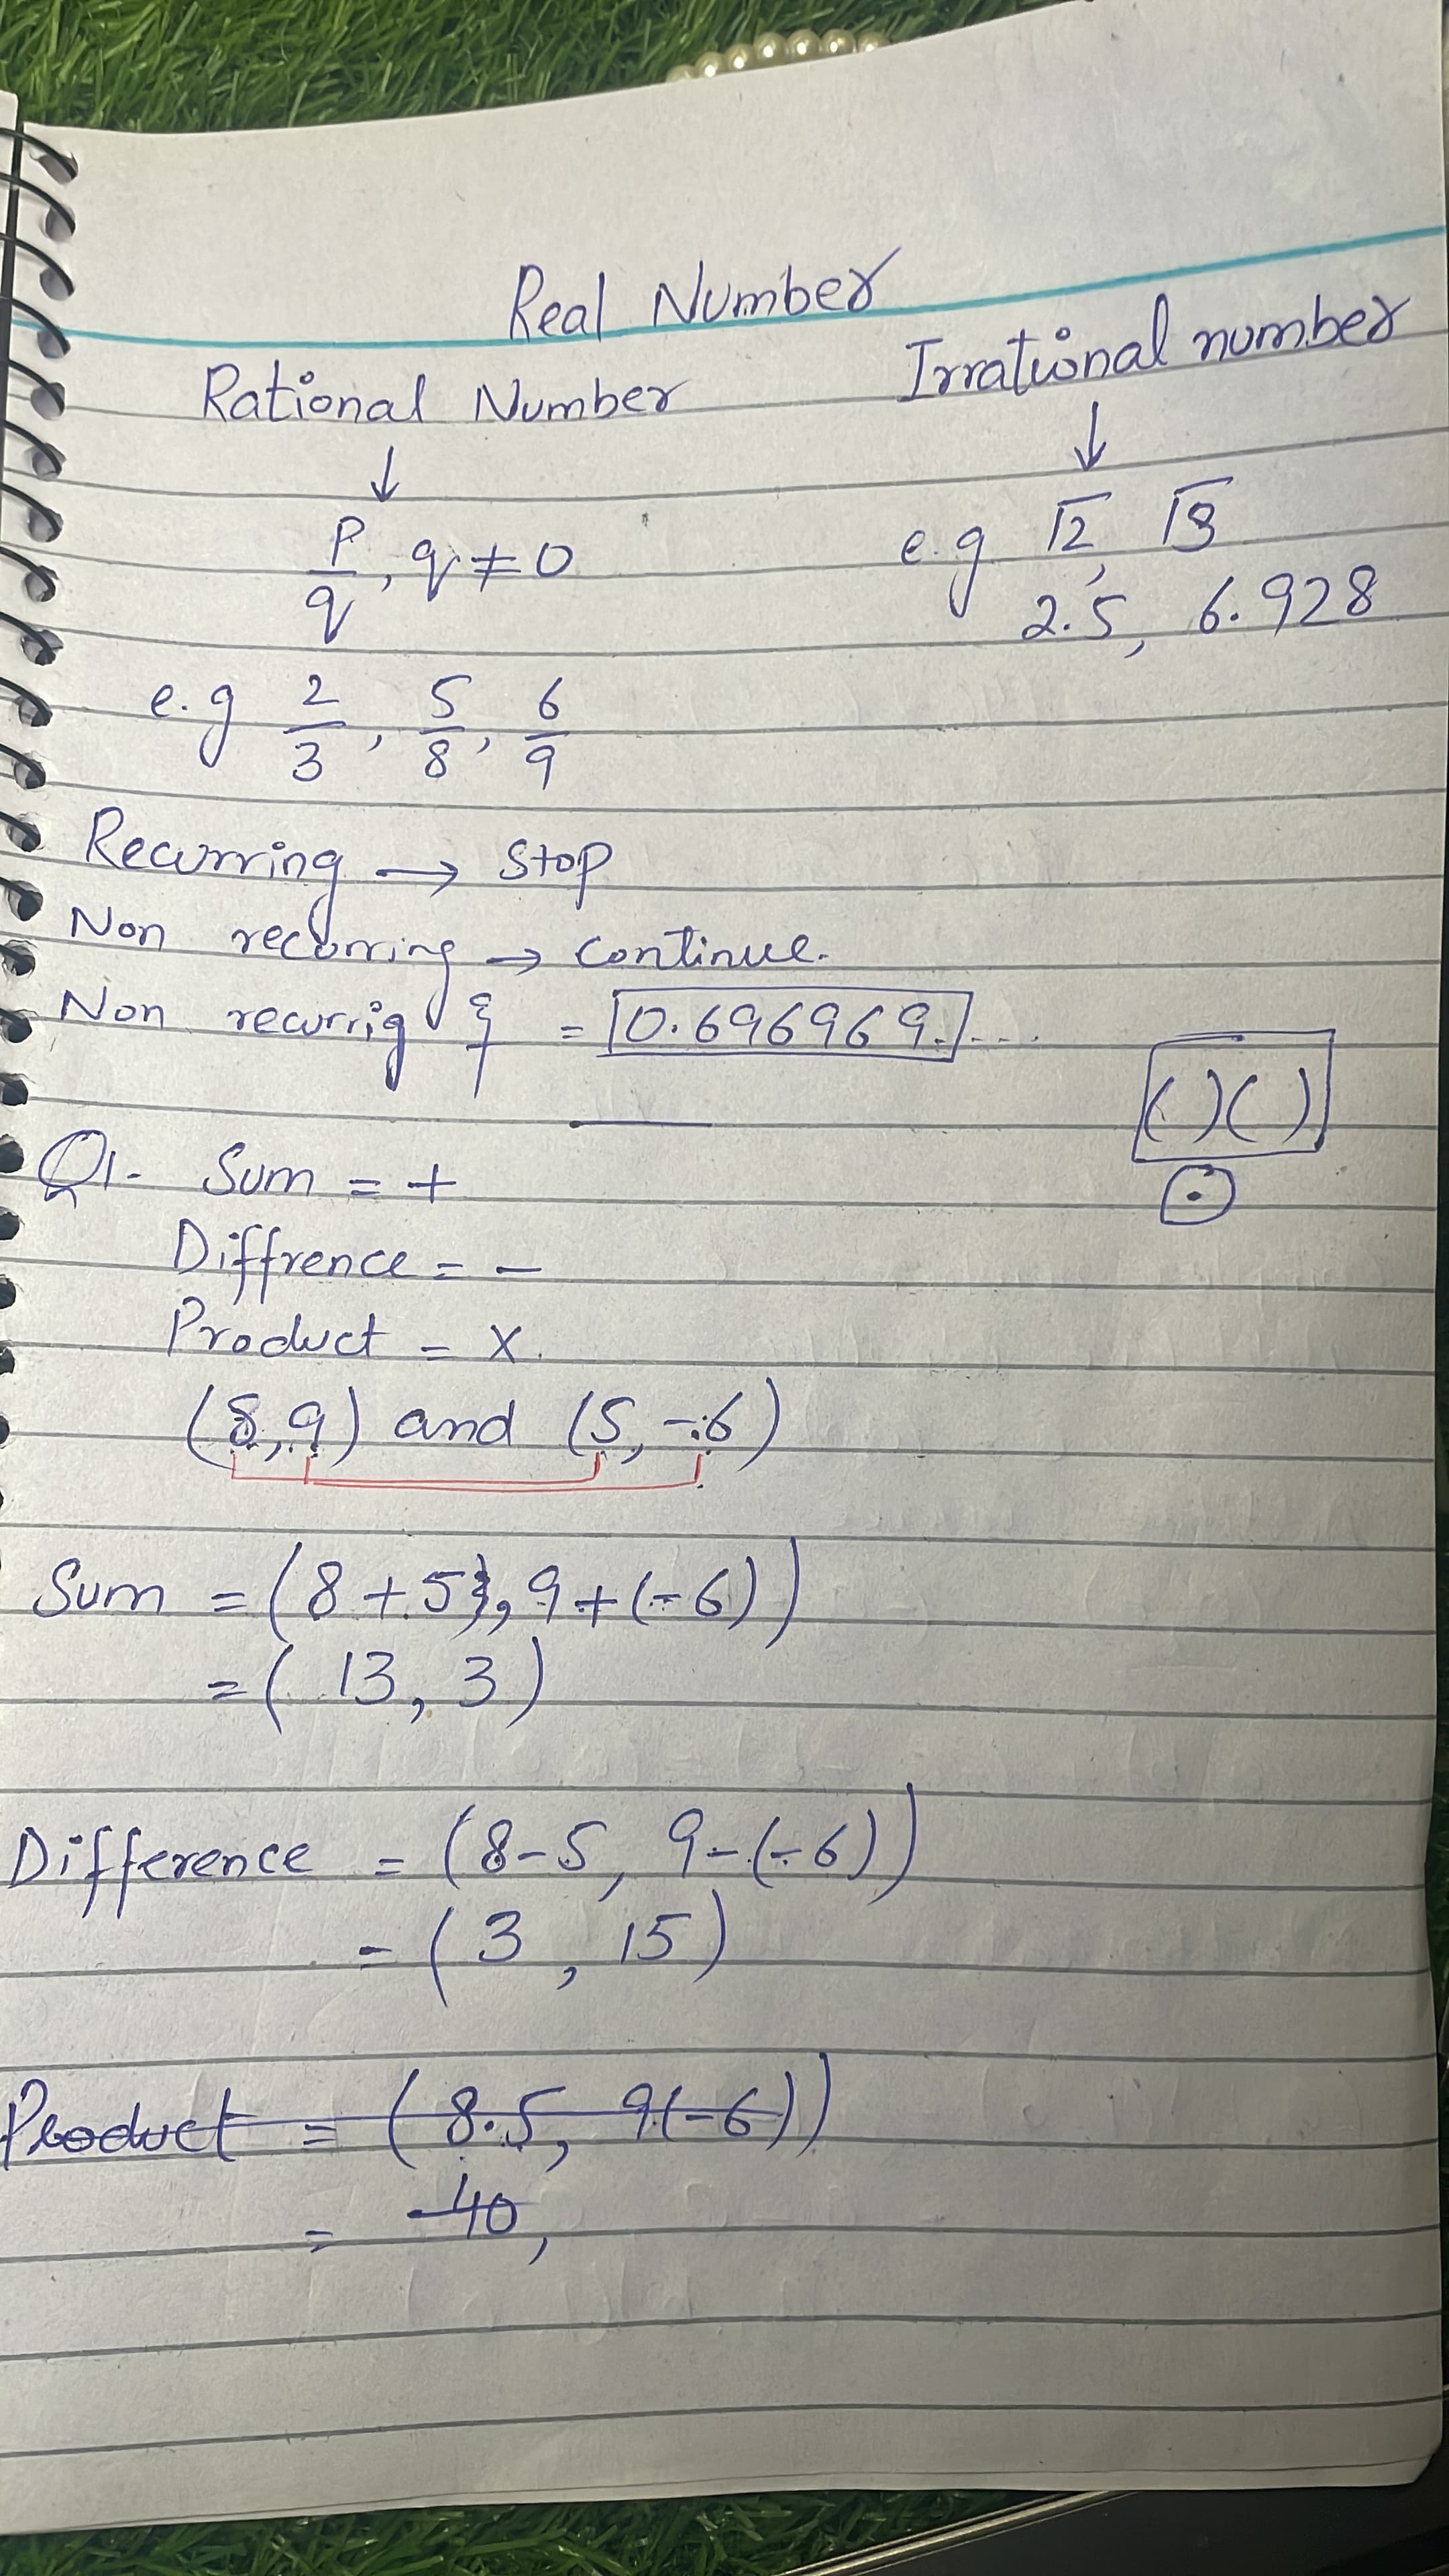 Real Number
Rational Number
Irrational number
↓
↓
p/q, q ≠ 0
e.g √2, √3
2.5, 6.928
e.g 2/3, 5/8, 6/9
Recurring → Stop
Non recurring → continue.
Non recurrig & = 0.696969....
( )( )
Q1- Sum = +
Diffrence = -
Product = x.
(8,9) and (5, -6)
Sum = (8+5, 9+(-6))
= ( 13, 3 )
Difference = (8-5, 9-(-6))
= ( 3 , 15 )
Product = ( 8.5, 9(-6))
= 40,